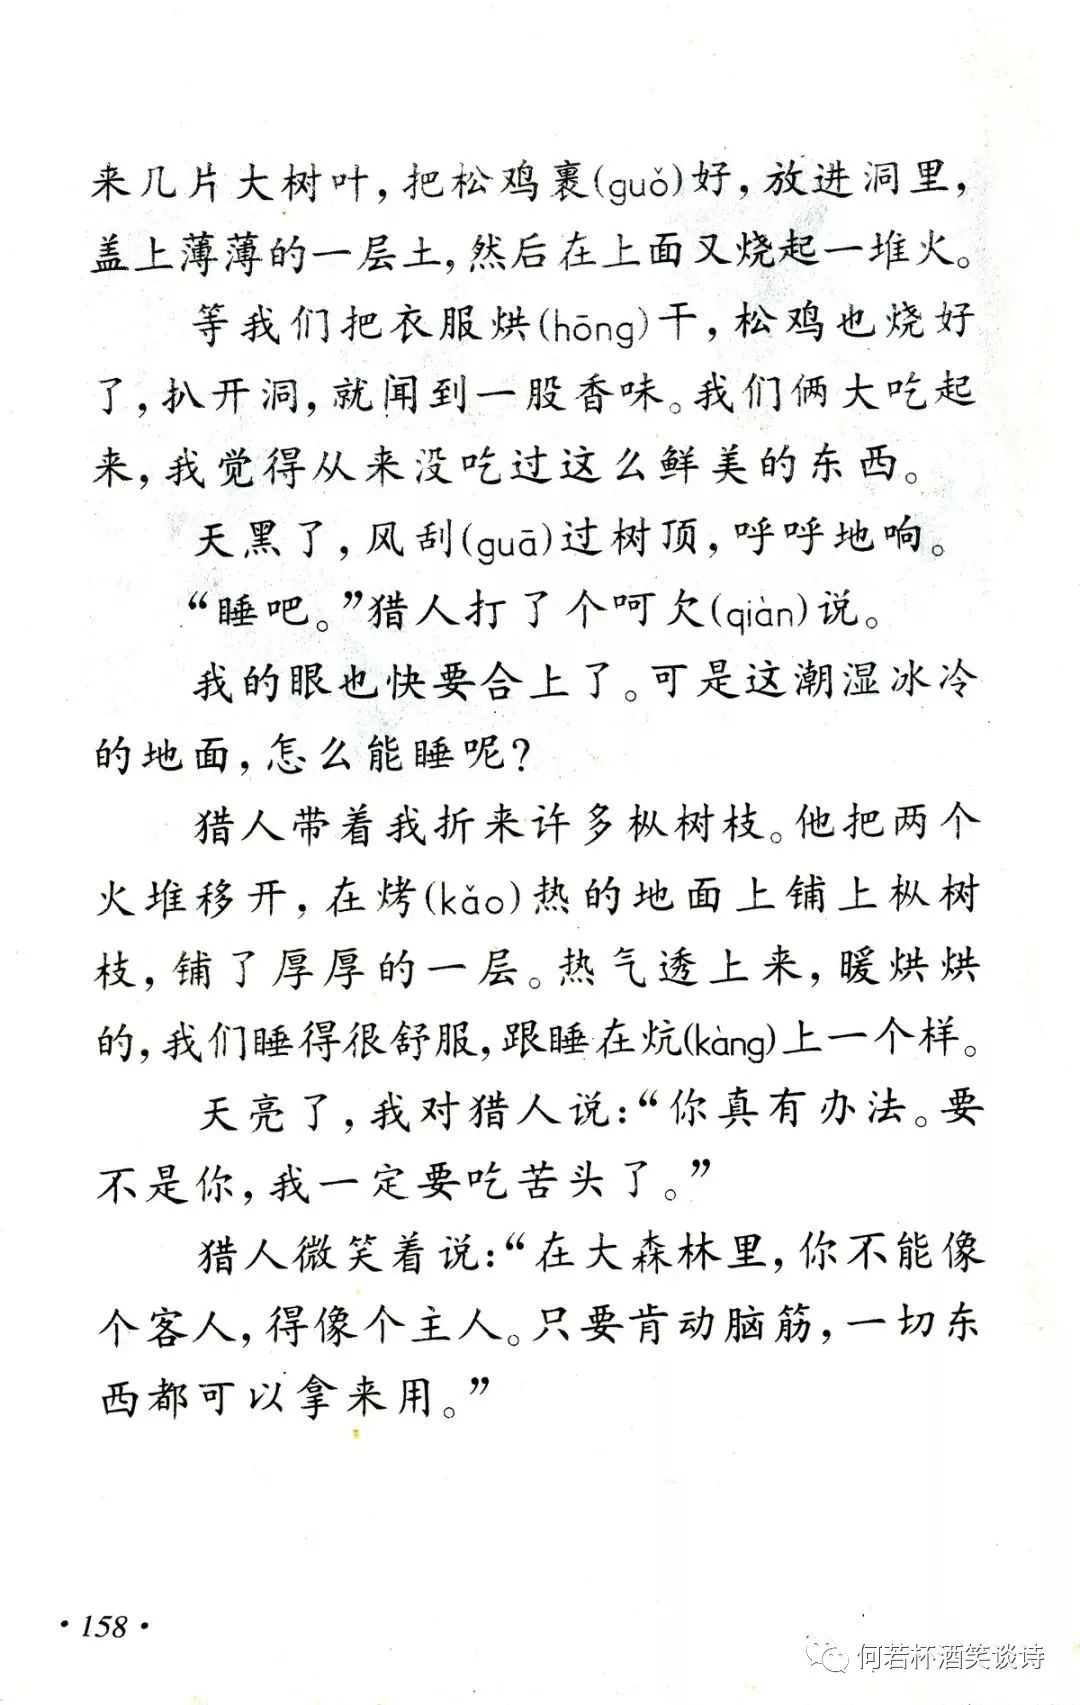 来几片大树叶，把松鸡裹(guǒ)好，放进洞里，
盖上薄薄的一层土，然后在上面又烧起一堆火。
等我们把衣服烘(hōng)干，松鸡也烧好
了，扒开洞，就闻到一股香味。我们俩大吃起
来，我觉得从来没吃过这么鲜美的东西。
天黑了，风刮(guā)过树顶，呼呼地响。
“睡吧。”猎人打了个呵欠(qiàn)说。
我的眼也快要合上了。可是这潮湿冰冷
的地面，怎么能睡呢？
猎人带着我折来许多枞树枝。他把两个
火堆移开，在烤(kǎo)热的地面上铺上枞树
枝，铺了厚厚的一层。热气透上来，暖烘烘
的，我们睡得很舒服，跟睡在炕(kàng)上一个样。
天亮了，我对猎人说：“你真有办法。要
不是你，我一定要吃苦头了。”
猎人微笑着说：“在大森林里，你不能像
个客人，得像个主人。只要肯动脑筋，一切东
西都可以拿来用。”
·158·
何若杯酒笑谈诗